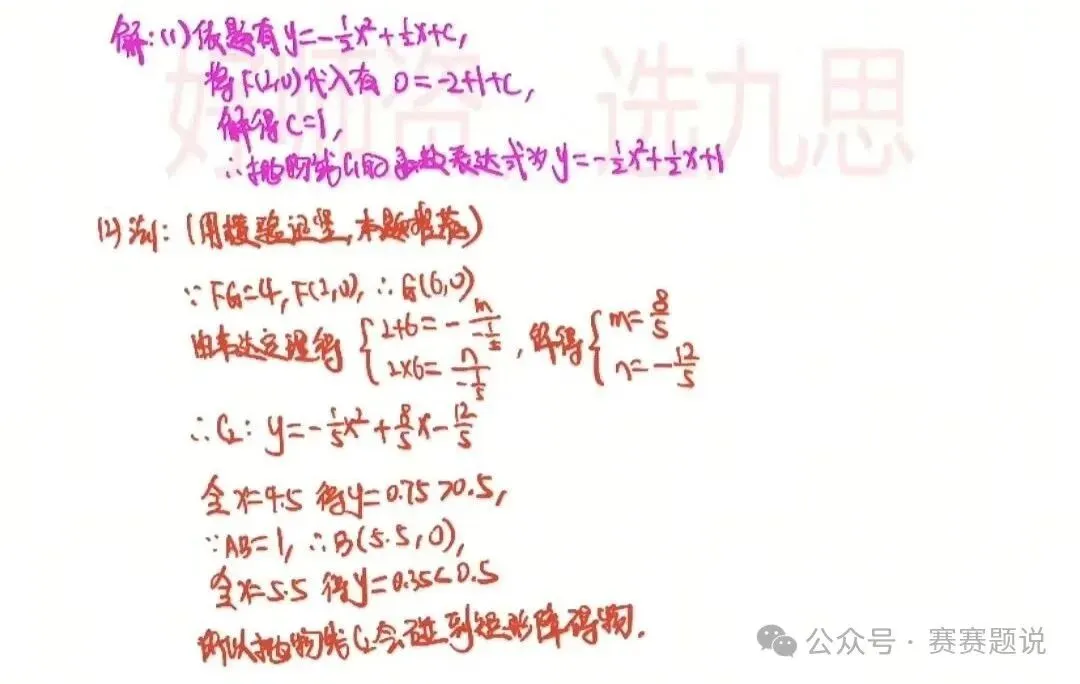 解:(1)依题有y=-1/2x²+1/2x+C,
将F(2,0)代入有 0=-2+1+C,
解得C=1,
∴抛物线C₁的函数表达式为y=-1/2x²+1/2x+1
好师资 选九思
(2)法1:(用横验证竖,本题推荐)
∵FG=4,F(2,0),∴G(6,0)
由韦达定理得{2+6=-m/(-1/5) 2×6=n/(-1/5),解得{m=8/5 n=-12/5
∴C₂:y=-1/5x²+8/5x-12/5
令x=4.5 得y=0.75>0.5,
∵AB=1,∴B(5.5,0),
令x=5.5 得y=0.35<0.5
所以抛物线C₂会碰到矩形障碍物.
公众号·赛赛题说